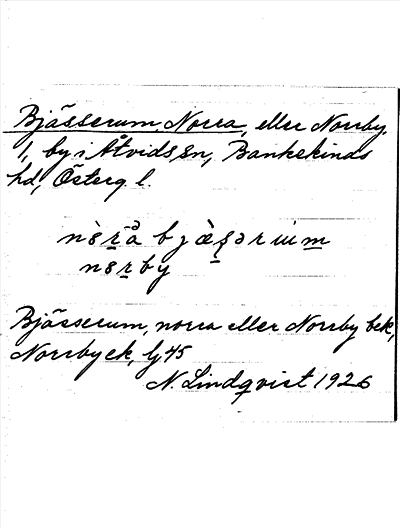 Bjässerum, Norra, eller Norrby.
1, by i Åtvids sn, Bankekinds
hd, Österg l.
Bjässerum, norra eller Norrby bek,
Norrby ek, lj 45
N. Lindqvist 1926